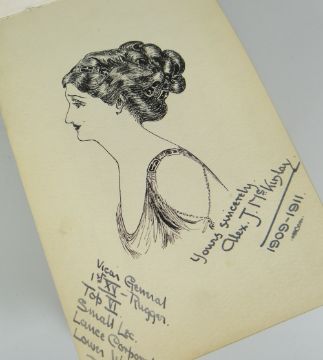 Yours sincerely
Alex. J. McKinlay.
1909-1911.
Vicar General
1st XV - Rugger.
Top VI.
Small Lec.
Lance Corporal
Lower